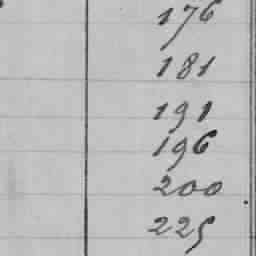 176
181
191
196
200
225